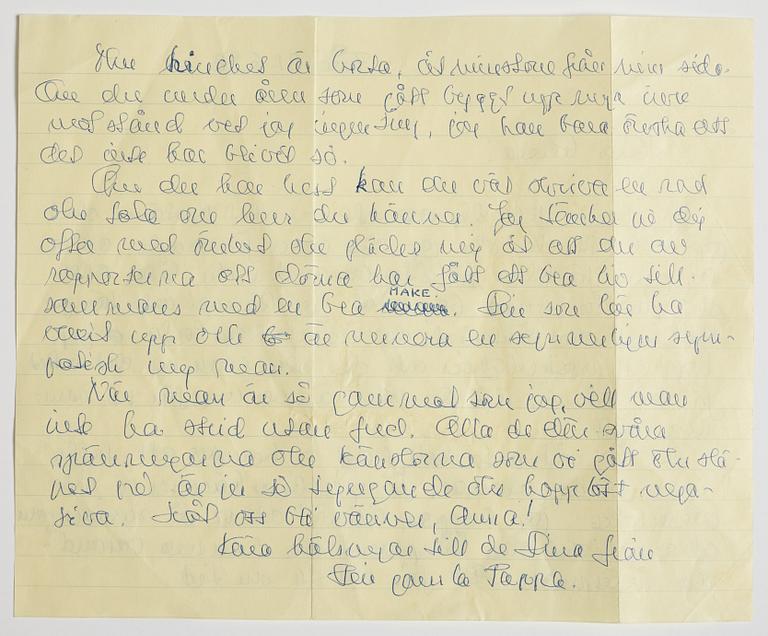 Men hindret är borta, åtminstone från min sida.
Om du under åren som gått byggt upp nya inre
motstånd vet jag ingenting, jag kan bara önska att
det inte har blivit så.
Om du har lust kan du väl skriva en rad
och tala om hur du känner. Jag tänker på dig
ofta med ömhet och gläder mig åt att du av
rapporterna att döma har fått ett bra liv till-
sammans med en bra MAKE. Han som lär ha
växt upp och är numera en synnerligen sym-
patisk ung man.
När man är så gammal som jag, vill man
inte ha strid utan fred. Alla de där svåra
spänningarna och känslorna som vi gått och slä-
pat på är ju så tyngande och hopplöst nega-
tiva. Låt oss bli vänner, Anna!
Kära hälsningar till de Dina från
Din gamla Pappa.